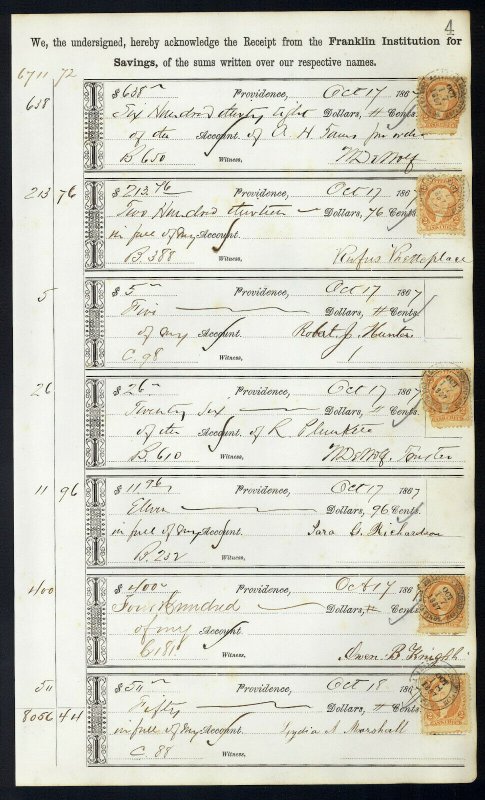 4
We, the undersigned, hereby acknowledge the Receipt from the Franklin Institution for
Savings, of the sums written over our respective names.
6711 72
638
$ 638 Providence, Oct 17 1867
Six Hundred thirty eight Dollars, Cents.
of the Account of A H
B 650 Witness, W DeWolf
213 76
$ 213.76 Providence, Oct 17 1867
Two Hundred thirteen Dollars, 76 Cents
in full of my Account.
B. 388 Witness, Rufus
5
$ 5 Providence, Oct 17 1867
Five Dollars, Cents.
of my Account. Robert J Hunter
C. 98 Witness,
26
$ 26 Providence, Oct 17 1867
Twenty Six Dollars, Cents.
of the Account. of R. Plunkett
B 610 Witness, W DeWolf, Trustee
11 96
$ 11.96 Providence, Oct 17 1867
Eleven Dollars, 96 Cents.
in full of my Account. Sara G. Richardson
B. 252 Witness,
400
$ 400 Providence, Oct 17 1867
Four Hundred Dollars, Cents
of my Account.
C 181 Witness, Owen B Knight
50
$ 50 Providence, Oct 18 1867
8056 44
Fifty Dollars, Cents
in full of my Account. Lydia A Marshall
C. 88 Witness,